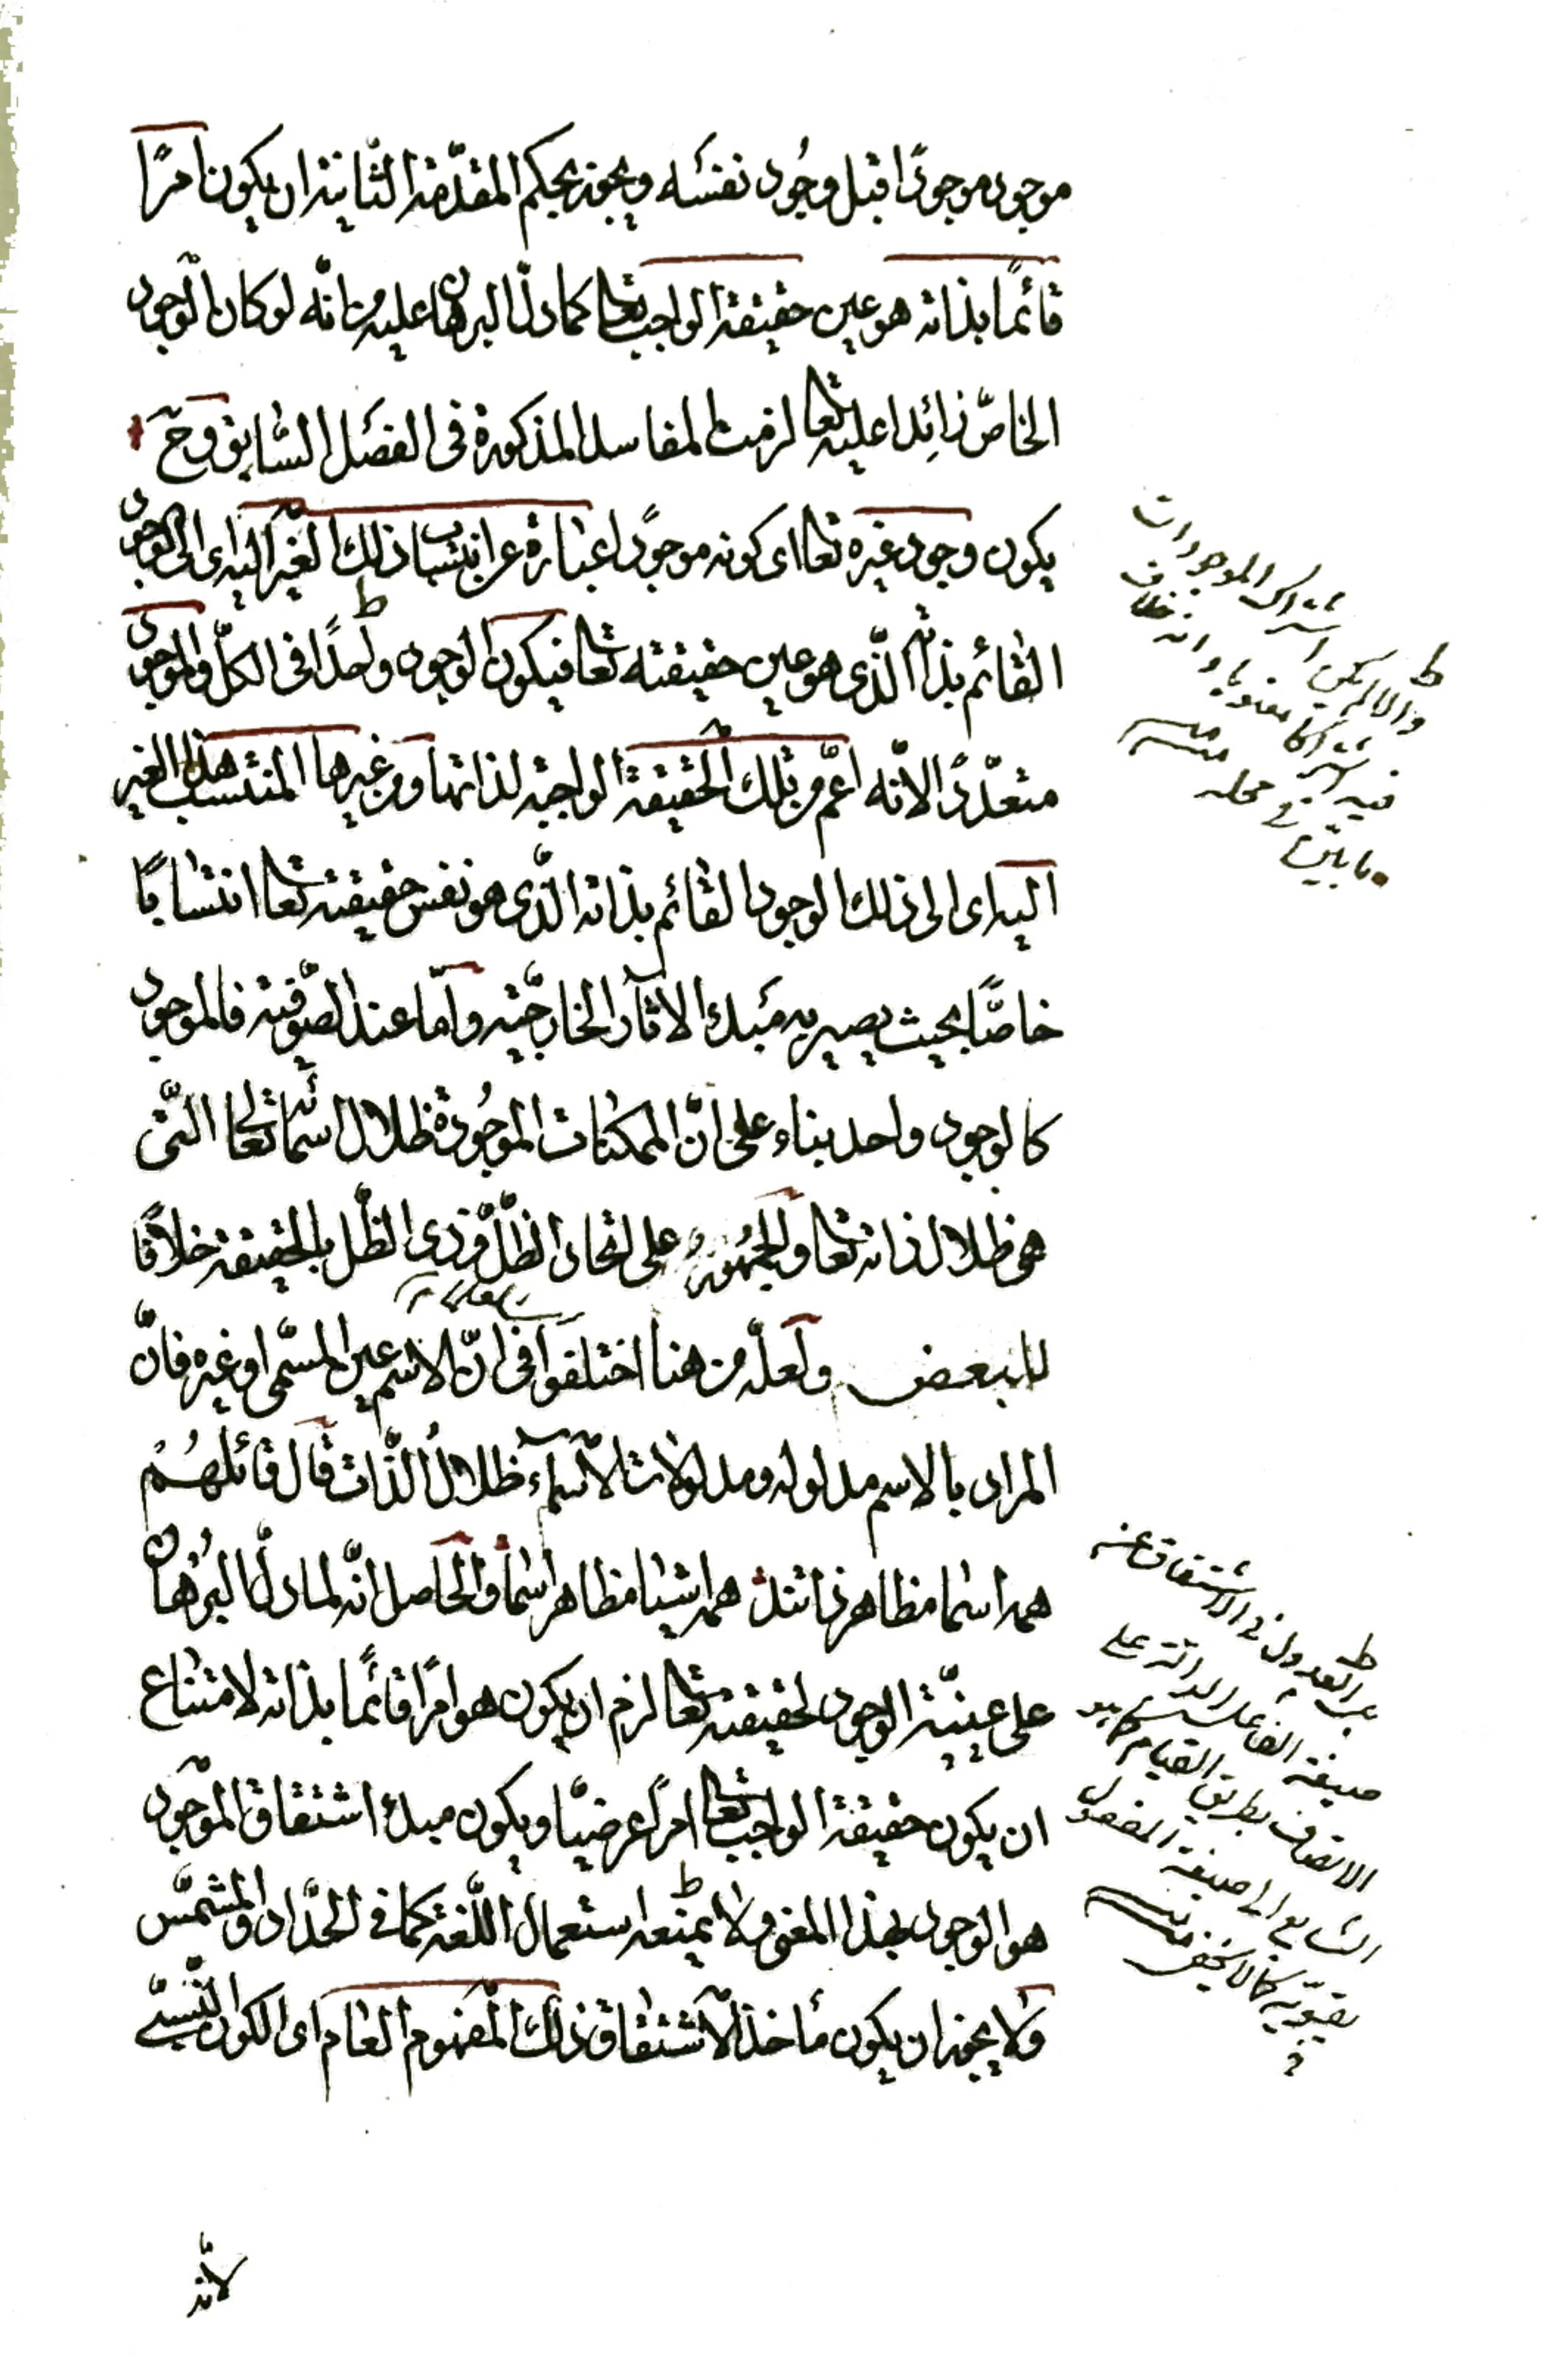 موجود موجودًا قبل وجُود نفسَه ويجوز بحكم المقدّمة الثّانية ان يكون امرًا
قائمًا بذاته هو عين حقيقة الواجب تعا كما دلّ البرهان عليه من انّه لو كان الوجود
الخاصّ زائِدا عليه تعا لزمت المفاسد المذكورة فى الفصَل السّابق وحٓ
يكون وجود غيره تعا اى كونه موجودًا عبارة عن انتساب ذلك الغير اليه اى الى الوجود
القائم بذاته الّذى هو عين حقيقته تعا فيكون الوجود واحدًا فى الكلّ والموجود
متعدّدًا لانّه اعمّ من تلك الحقيقة الواجبة لذاتها ومن غيرها المنتسب هذا الغير
اليه اى الى ذلك الوجود القائم بذاته الّذى هو نفس حقيقته تعا انتسابًا
خاصًّا بحيث يصير به مَبدأ الاثار الخارجيّة وامّا عند الصّوفيّة فالموجود
كالوجود واحد بناء على انّ الممكنات الموجُودة ظلال اسمائه تعالى الّتى
هى ظلال ذاته تعا والجُمهُورُ على اتحاد الظّل وذى الظّل بالحقيقة خلافًا
للبعض ولعلّه من هنا اختلفوا فى انّ الاسم عين المسّمى او غيره فانّ
المراد بالاسم مدلوله ومدلولات الاسماء ظلالُ الذّات قال قائلهُمْ
همه اسما مظاهر ذاتند همه اشيا مظاهر اسما والحاصل انّه لما دلّ البُرهَان
على عينيّة الوجود لحقيقته تعا لزم ان يكون هو امرًا قائمًا بذاته لامتناع
ان يكون حقيقة الواجب تعا امرًا عرضيّا ويكون مبدأ اشتقاق الموجود
هو الوجود بهذا المعنى ولا يمنعه استعمال اللّغة كما فى الحدّاد والمشمّس
ولا يجوز ان يكون مأخذ الاشتقاق ذلك المفهوم العام اى الكون النّسبىّ
والا لم يكن اشتراك الموجودات
فيه اشتراكا معنويا وانه خلاف
ما بيّن فى محله منه
العدول فى الاشتقاق عنه
صيغة الفاعل الدالة على
الاتصاف بطريق القيام
الى صيغة المفعول
كما لا يخفى منه
لانّه